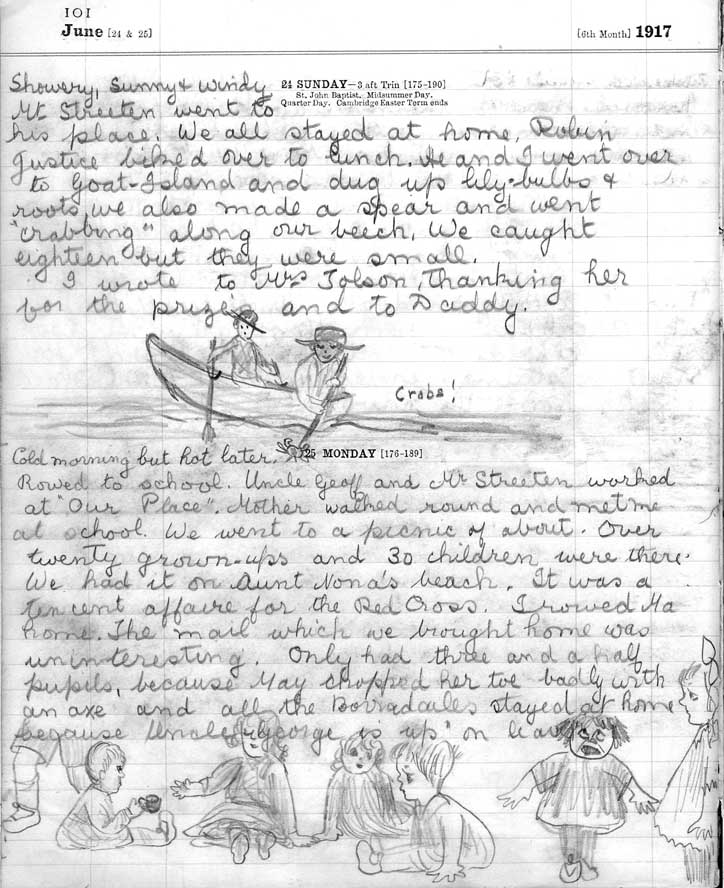 101
June [24 & 25]
[6th Month] 1917
24 SUNDAY—3 aft Trin [175-190]
St. John Baptist. Midsummer Day.
Quarter Day. Cambridge Easter Term ends
Showery, Sunny & windy
Mr Streeten went to
his place. We all stayed at home, Robin
Justice biked over to lunch. He and I went over
to Goat-Island and dug up lily-bulbs &
roots, we also made a spear and went
"crabbing" along our beech. We caught
eighteen but they were small.
I wrote to Mrs Tolson, thanking her
for the prizes and to Daddy.
Crabs!
25 MONDAY [176-189]
Cold morning but hot later.
Rowed to school. Uncle Geoff and Mr Streeten worked
at "Our Place". Mother walked round and met me
at school. We went to a picnic of about. Over
twenty grown-ups and 30 children were there.
We had it on Aunt Nona's beach. It was a
ten cent affaire for the Red Cross. I rowed Ma
home. The mail which we brought home was
uninteresting. Only had three and a half
pupils, because May chopped her toe badly with
an axe and all the Borradailes stayed at home
because Uncle George is "up" on leave